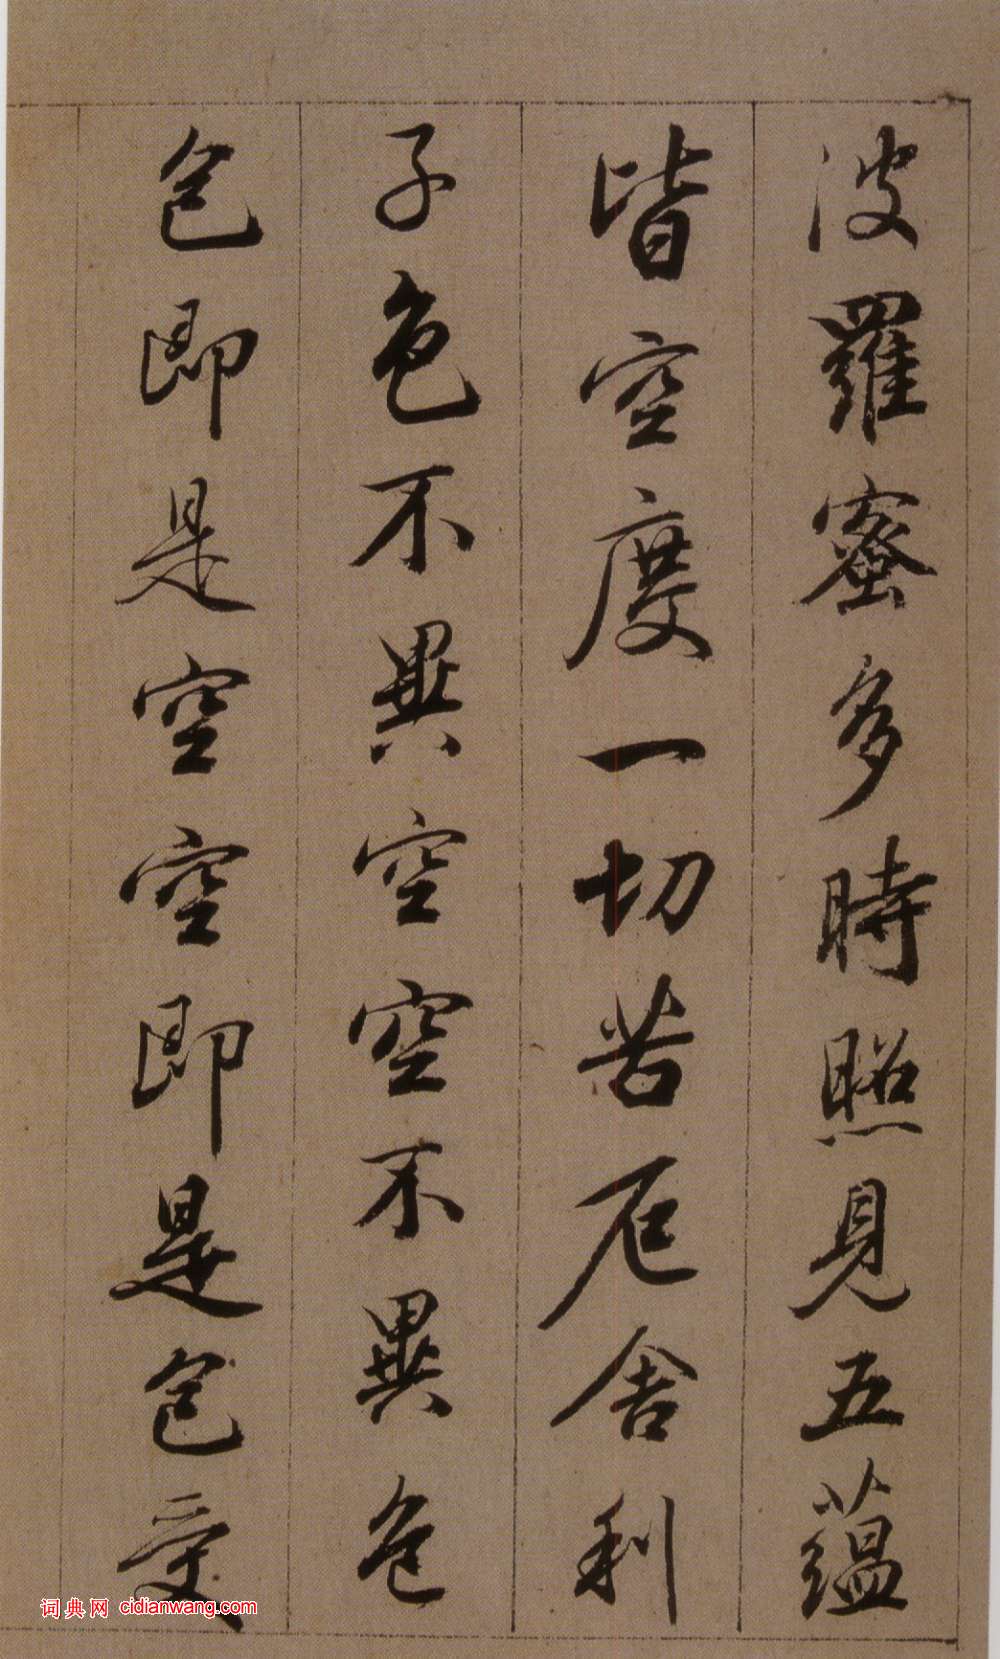 波羅蜜多時照見五蘊
皆空度一切苦厄舍利
子色不異空空不異色
色即是空空即是色受
词典网 cidianwang.com